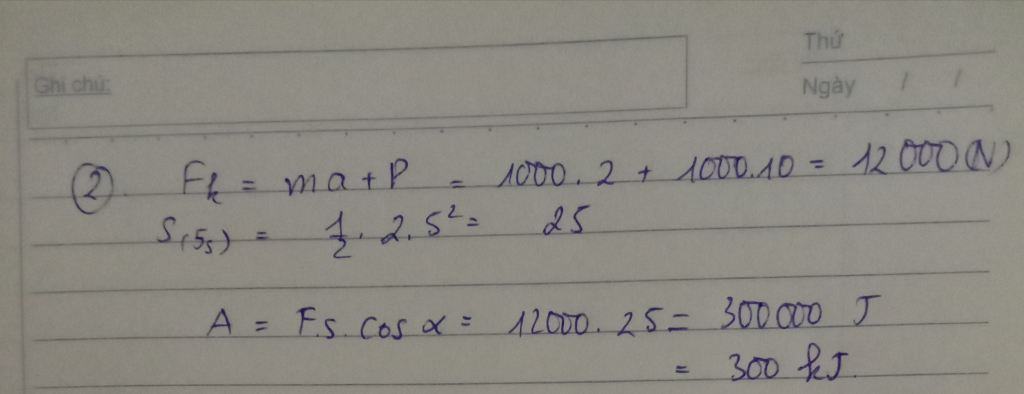 Thứ
Ghi chú:
Ngày / /
② . Fk = ma + P = 1000.2 + 1000.10 = 12000(N)
S(5s) = 1/2 . 2. 5² = 25
A = F.s. cos α = 12000. 25 = 300000 J
= 300 kJ.